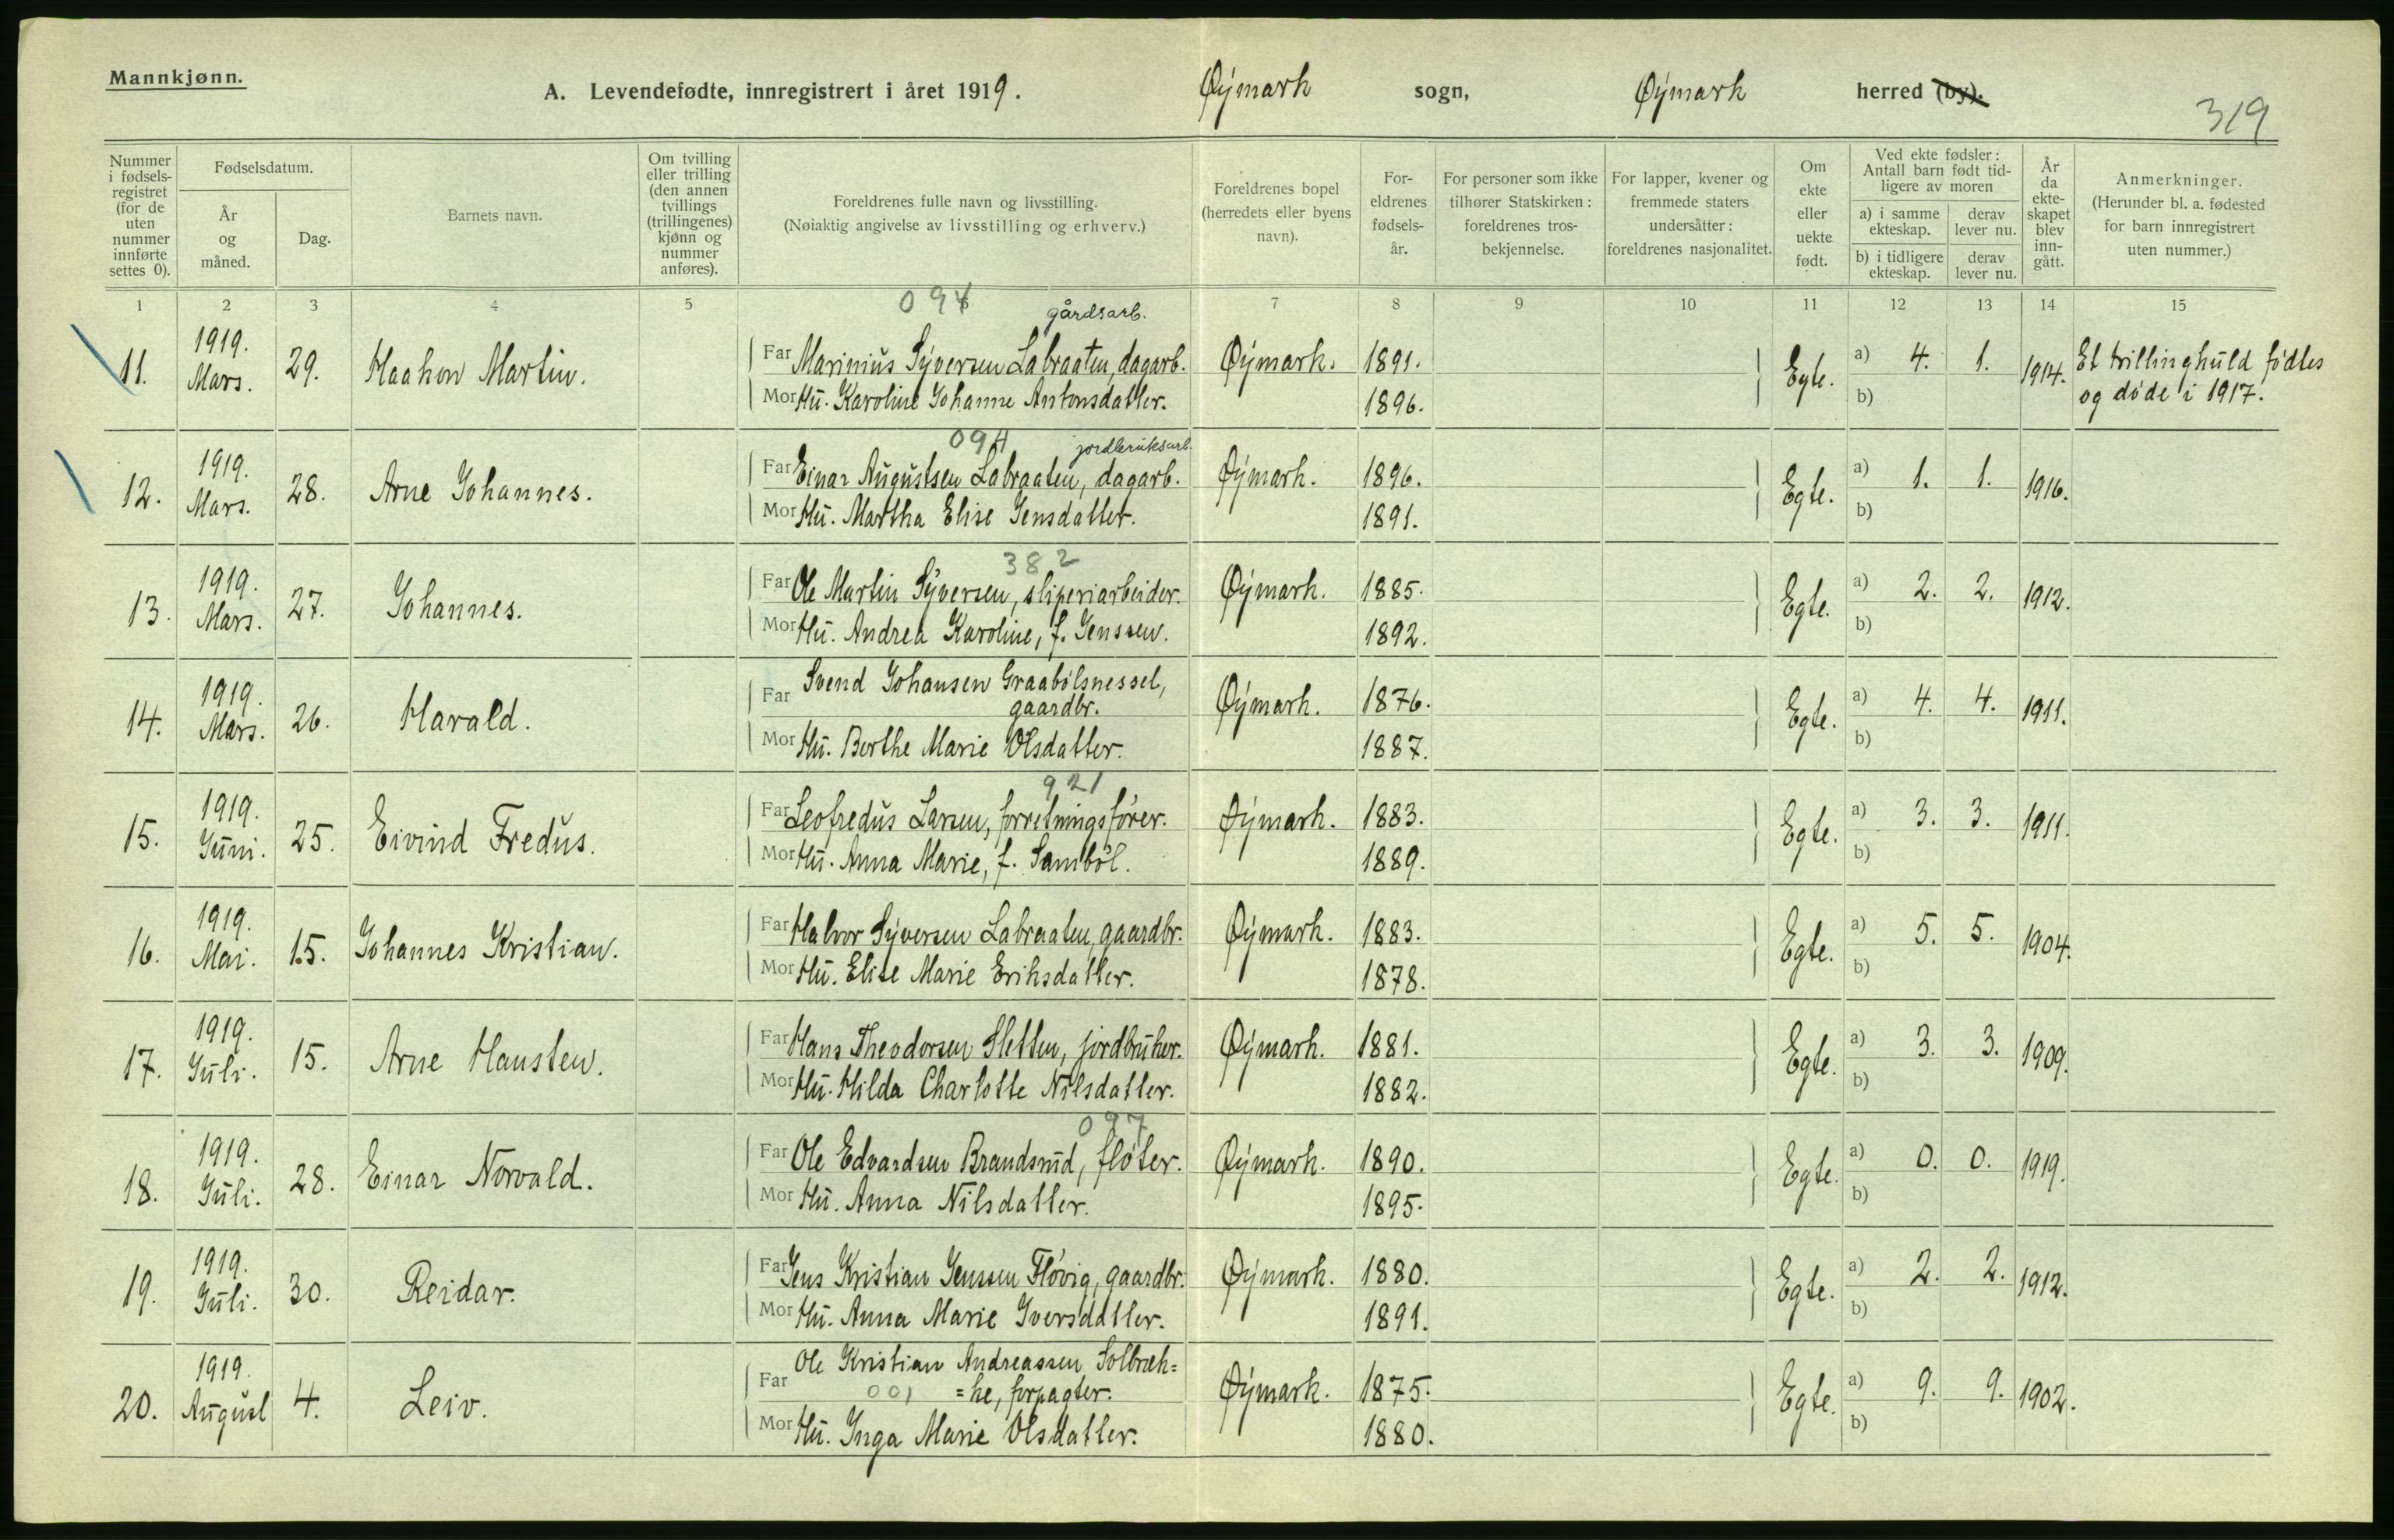 Mannkjønn.
A. Levendefødte, innregistrert i året 1919. Øymark sogn, Øymark herred (by).
319
Nummer i fødsels-registret (for de uten nummer innførte settes 0).
Fødselsdatum.
År og måned.
Dag.
Barnets navn.
Om tvilling eller trilling (den annen tvillings (trillingenes) kjønn og nummer anføres).
Foreldrenes fulle navn og livsstilling.
(Nøiaktig angivelse av livsstilling og erhverv.)
Foreldrenes bopel (herredets eller byens navn).
For-eldrenes fødsels-år.
For personer som ikke tilhører Statskirken: foreldrenes tros-bekjennelse.
For lapper, kvener og fremmede staters undersåtter: foreldrenes nasjonalitet.
Om ekte eller uekte født.
Ved ekte fødsler: Antall barn født tid-ligere av moren
a) i samme ekteskap. derav lever nu.
b) i tidligere ekteskap. derav lever nu.
År da ekte-skapet blev inn-gått.
Anmerkninger.
(Herunder bl. a. fødested for barn innregistrert uten nummer.)
1 2 3 4 5 6 7 8 9 10 11 12 13 14 15
094 gårdsarb.
11. 1919. Mars. 29. Haakon Martin. Far Marinius Syversen Labraaten, dagarb. Øymark. 1891. Egte. a) 4. 1. 1914. Et trillinghuld fødtes
Mor Hu. Karoline Johanne Antonsdatter. 1896. b) og døde i 1917.
094 jordbruksarb.
12. 1919. Mars. 28. Arne Johannes. Far Einar Augustsen Labraaten, dagarb. Øymark. 1896. Egte. a) 1. 1. 1916.
Mor Hu. Martha Elise Jensdatter. 1891. b)
382
13. 1919. Mars. 27. Johannes. Far Ole Martin Syversen, sliperiarbeider. Øymark. 1885. Egte. a) 2. 2. 1912.
Mor Hu. Andrea Karoline, f. Jenssen. 1892. b)
14. 1919. Mars. 26. Harald. Far Svend Johansen Graabølsnessel,
gaardbr. Øymark. 1876. Egte. a) 4. 4. 1911.
Mor Hu. Berthe Marie Olsdatter. 1887. b)
921
15. 1919. Juni. 25. Eivind Fredus. Far Leofredus Larsen, forretningsfører. Øymark. 1883. Egte. a) 3. 3. 1911.
Mor Hu. Anna Marie, f. Sambøl. 1889. b)
16. 1919. Mai. 15. Johannes Kristian. Far Halvor Syversen Labraaten, gaardbr. Øymark. 1883. Egte. a) 5. 5. 1904.
Mor Hu. Elise Marie Eriksdatter. 1878. b)
17. 1919. Juli. 15. Arne Hansten. Far Hans Theodorsen Sletten, jordbruker. Øymark. 1881. Egte. a) 3. 3. 1909.
Mor Hu. Hilda Charlotte Nilsdatter. 1882. b)
097
18. 1919. Juli. 28. Einar Norvald. Far Ole Edvardsen Brandsrud, fløter. Øymark. 1890. Egte. a) 0. 0. 1919.
Mor Hu. Anna Nilsdatter. 1895. b)
19. 1919. Juli. 30. Reidar. Far Jens Kristian Jenssen Fløvig, gaardbr. Øymark. 1880. Egte. a) 2. 2. 1912.
Mor Hu. Anna Marie Iversdatter. 1891. b)
20. 1919. August 4. Leiv. Far Ole Kristian Andreassen Solbræk=
001 =ke, forpagter. Øymark. 1875. Egte. a) 9. 9. 1902.
Mor Hu. Inga Marie Olsdatter. 1880. b)